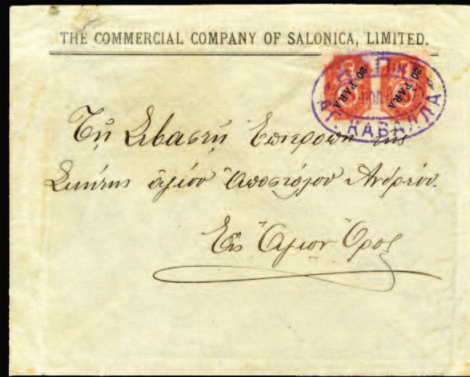 THE COMMERCIAL COMPANY OF SALONICA, LIMITED.
20 PARA 20 PARA
ΚΑΒΑΛΛΑ
Τῇ Σεβαστῇ Ἐπιτροπῇ τῆς
Σκήτης ἁγίου Ἀποστόλου Ἀνδρέου.
Εἰς Ἅγιον Ὄρος